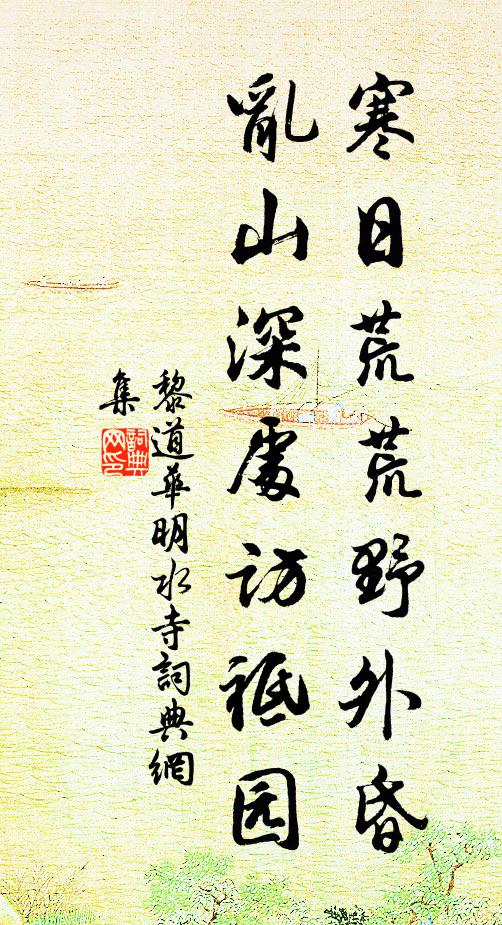 寒日荒荒野外昏
亂山深處访祇园
黎道華明水寺詞典網
集
詞典網印